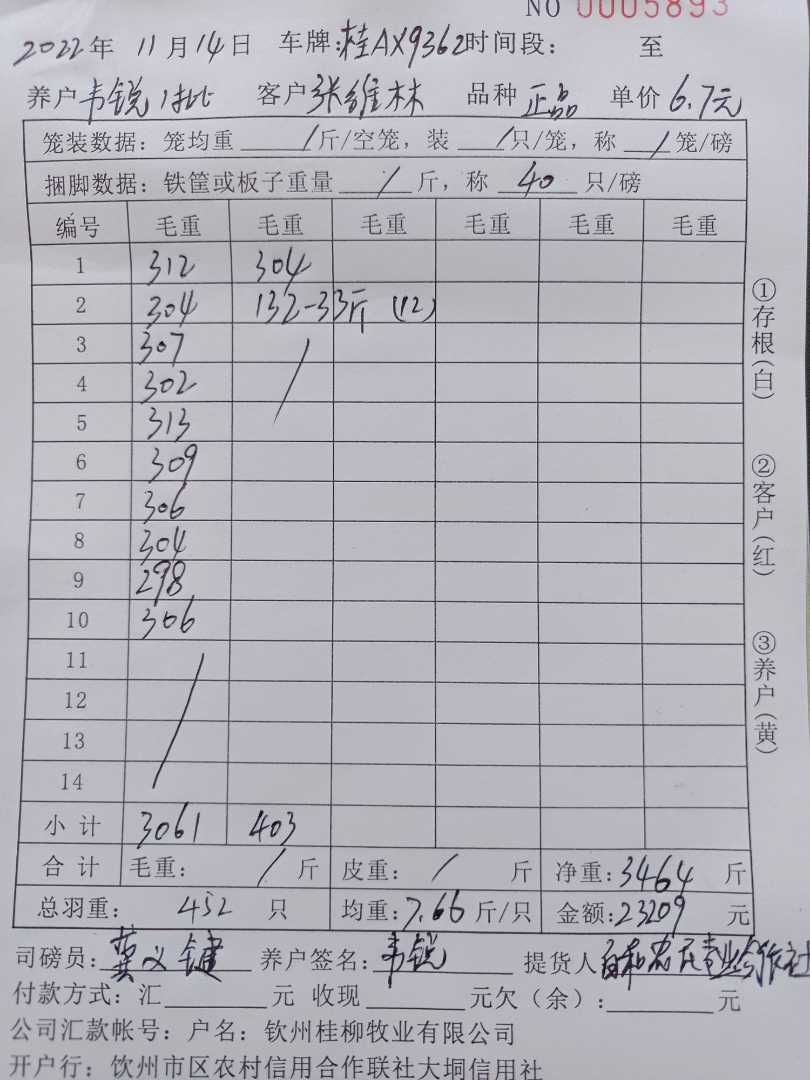 NO 0005893
2022年 11月14日 车牌:桂AX9362时间段: 至
养户 韦锐1批 客户 张维林 品种 正品 单价 6.7元
笼装数据: 笼均重 / 斤/空笼, 装 / 只/笼, 称 / 笼/磅
捆脚数据: 铁筐或板子重量 / 斤, 称 40 只/磅
编号 毛重 毛重 毛重 毛重 毛重 毛重
1 312 304
2 304 132-33斤 (12)
3 307 /
4 302
5 313
6 309
7 306
8 304
9 298
10 306
11 /
12
13
14
小计 3061 403
合计 毛重: / 斤 皮重: / 斤 净重:3464 斤
总羽重: 452 只 均重:7.66 斤/只 金额:23209 元
司磅员: 龚义键 养户签名: 韦锐 提货人
付款方式: 汇 元 收现 元欠(余): 元
公司汇款帐号: 户名: 钦州桂柳牧业有限公司
开户行: 饮州市区农村信用合作联社大垌信用社
①存根(白)
②客户(红)
③养户(黄)